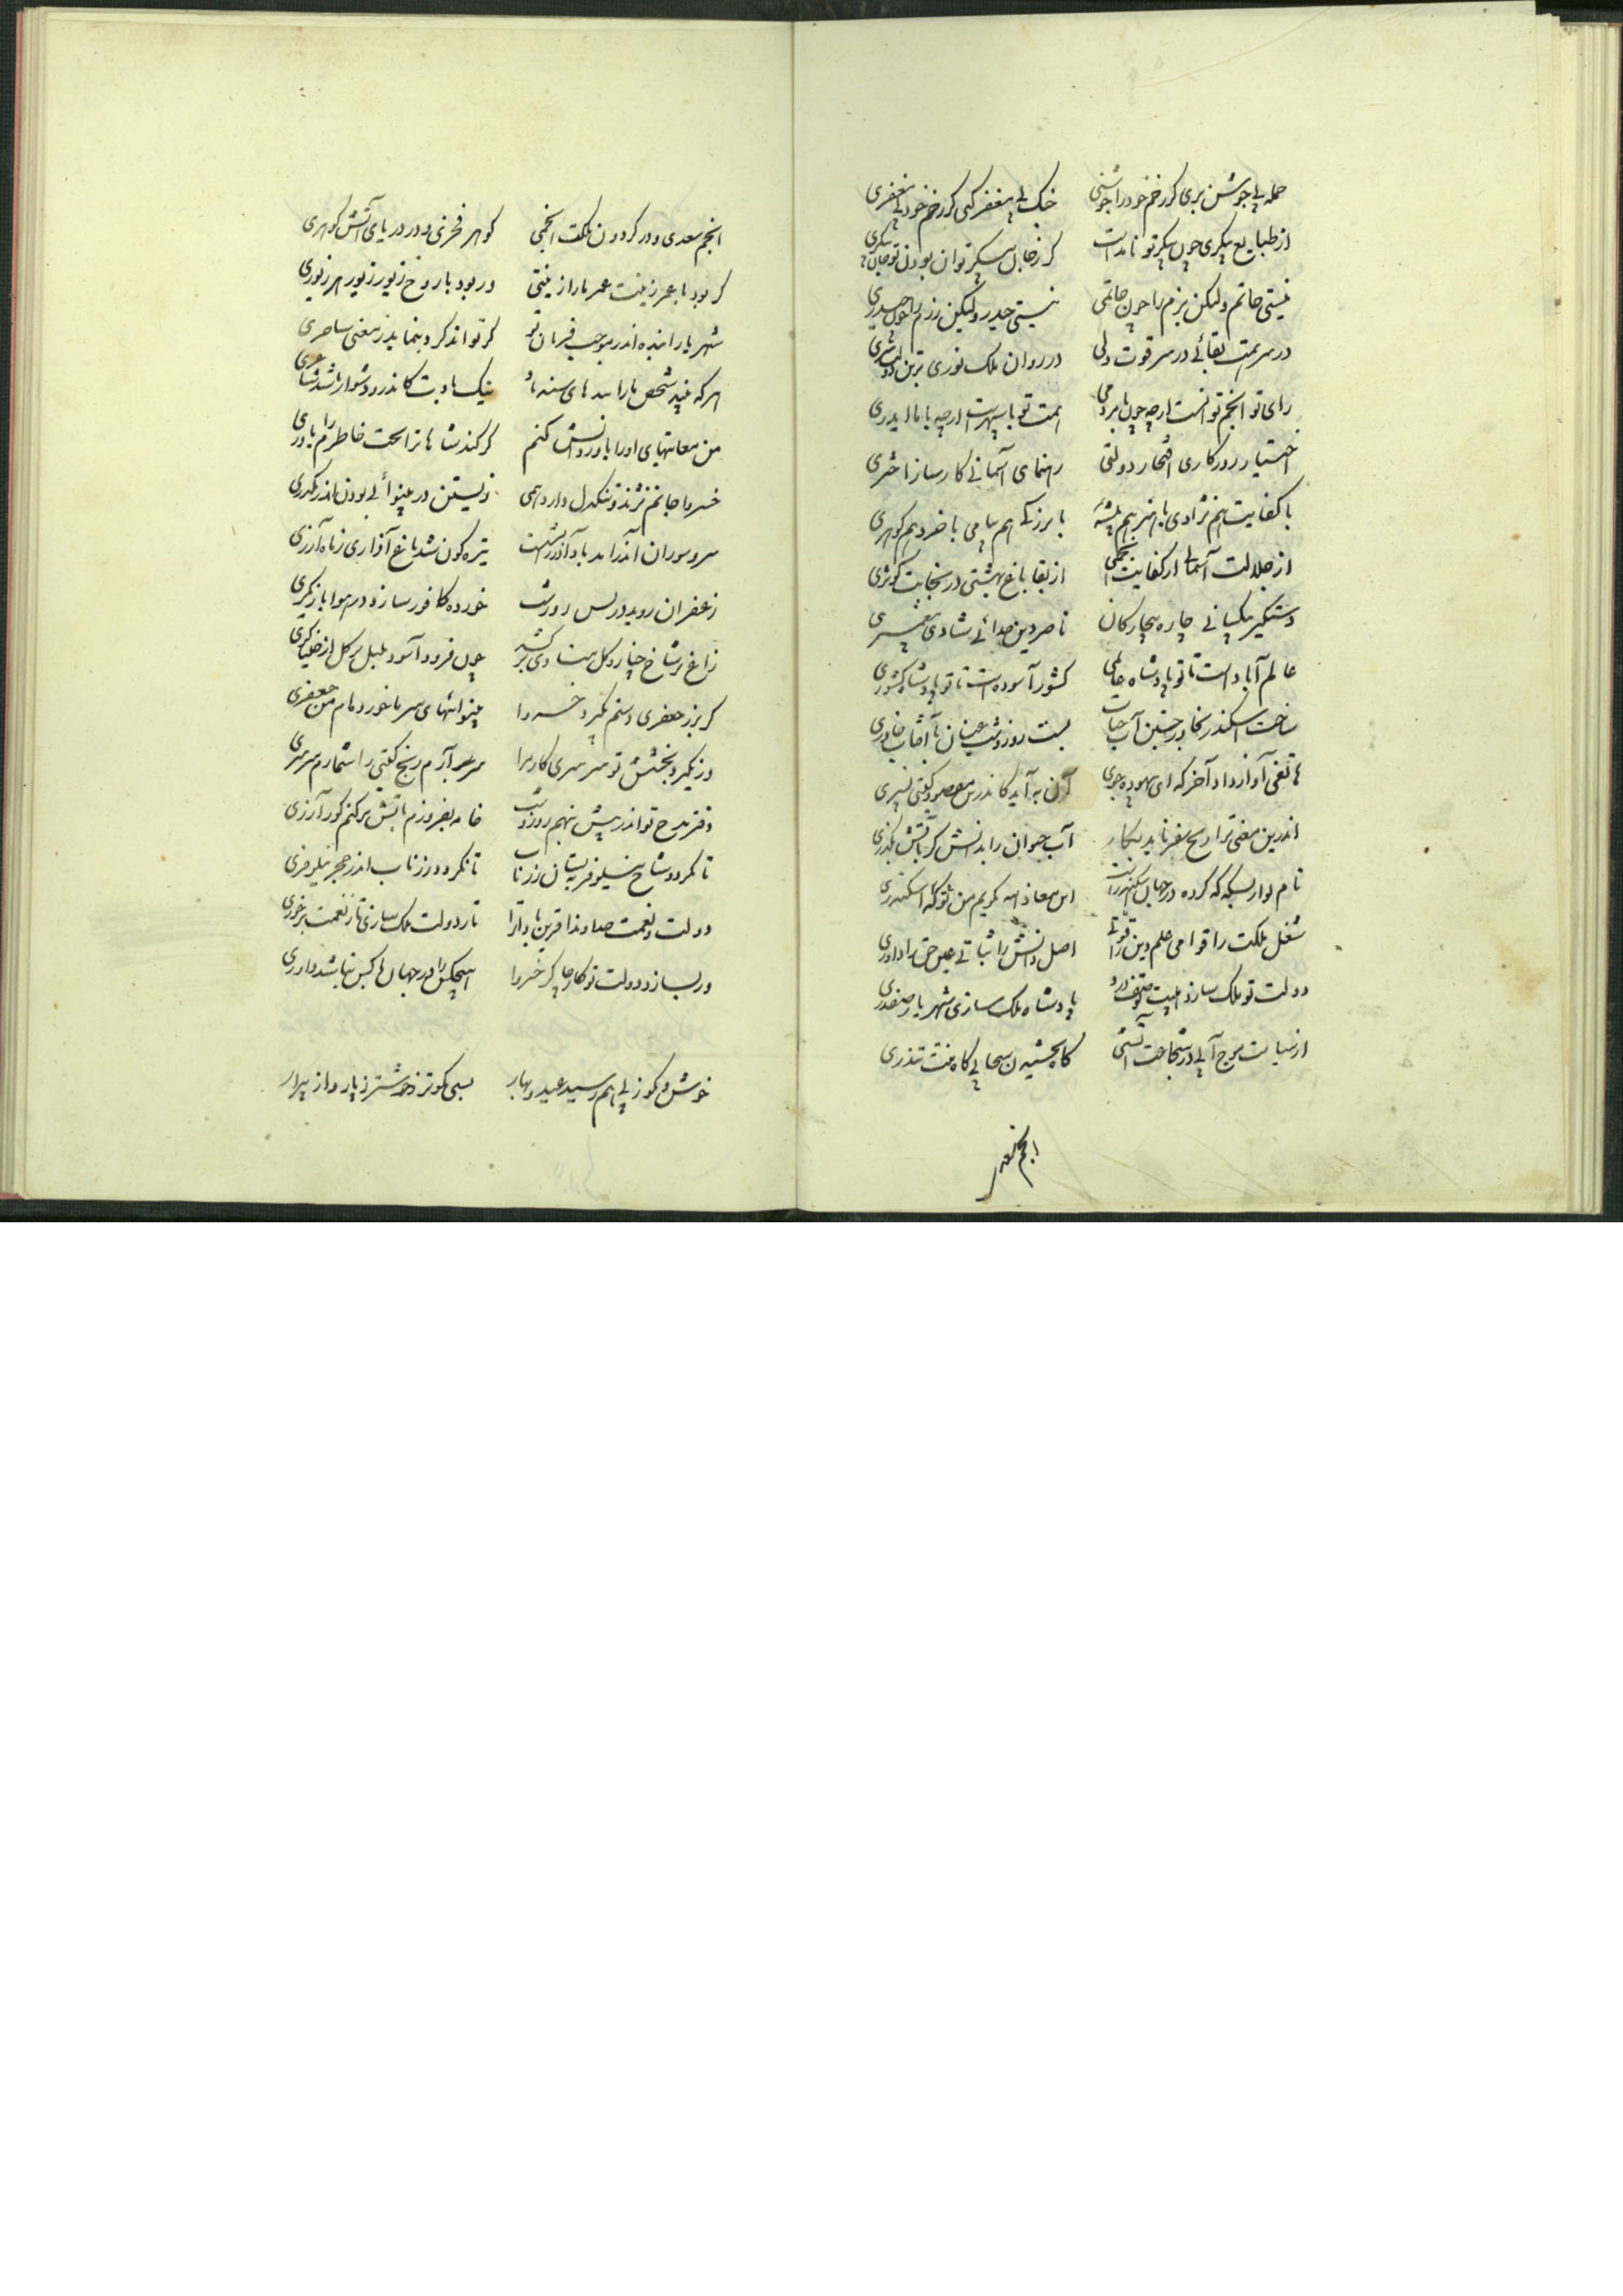 حمله بی جوشن بری کز زخم خود را جوشنی
جنگ بی مغفر کنی کز زخم خود بی مغفری
از طبایع پیکری چون پیکر تو نامدست
کر ز جان پیکر توان بودن تو جان پیکری
نیستی حاتم ولیکن بزم را چون حاتمی
نیستی حیدر ولیکن رزم را چون حیدری
در سر همت بقائی در سر قوت دلی
در روان ملک نوری بر تن دولت سری
رای تو انجم توانست ارچه چون ما بردمی
همت تو با سپهرست ارچه با ما ایدری
اختیار روزکاری افتخار دولتی
رهنمای آسمانی کارساز اختری
با کفایت هم نژادی با هنر هم پیشه
با بزرکی هم بیامی با خرد هم کوهری
از جلالت آسمانی از کفایت انجمی
از بقا باغ بهشتی در سخایت کوثری
دستکیر بیکسانی چاره بیچارکان
ناصر دین خدائی شادی پیغمبری
عالم آبادست تا تو پادشاه عالمی
کشور آسوده است تا تو پادشاه کشوری
ساخت اسکندر بخاور جستن آب حیات
بیست روز و شب چنان با آفتاب خاوری
هاتفی آواز داد آخر که ای بیهوده جوی
آن به آید کاندرین مقصود کیتی نسپری
اندرین معنی ترا رنج سفر ناید بکار
آب حیوان را بدانش کر باتش بکذری
نام او از بسکه کرده در جهان اسکندرانت
این معاذ الله کریم من تو که اسکندری
شغل ملکت را قوامی علم دین را قوتی
اصل دانش را ثباتی عین حق را داوری
دولت تو ملک سازد هیبت تو صف درد
پادشاه ملک سازی شهریار صفدری
از سیاست موج آبی در شجاعت آتشی
کاه بخشیدن سحابی کاه منت تندری
انجم سعد
انجم سعدی و در کردون ملکت انجمی
کوهر فخری و در دریای آتش کوهری
کر بود با عمر زینت عمر ما را زینتی
ور بود با روح زیور زیور هر زیوری
شهریارا بنده اندر موجب فرمان تو
کر تواند کرد بنماید ز معنی ساحری
هر که بیند شخص ما را بندهای سندباد
نیک داند کاندرو دشوار باشد شاعری
من معانیهای او را یاور دانش کنم
کر کند شاها ترا بخت خاطرم را یاوری
خسروا جانم نژند و تنکدل دارد همی
زیستن در بینوائی بودن اندر مکدری
سرو سوران آذر آمد باد آذر مشت
تیره کون شد باغ آذاری ز ماه آذری
زعفران روید در پس رورت
خورده کافور سازد در هوا باز نکری
زاغ بر شاخ چنار و کل بشادی برکشد
چون فرود آسود بلبل بر کل از خنیاکری
کر بزر جعفری دستم نکیرد خسروا
بینوائیهای سرما خورد مام من جعفری
ور نکیرد بخشش تو سرسری کار مرا
سر بسر آرم رنج کیتی را شمارم سرسری
دفتر مدح تو اندر پیش بنهم روز و شب
خامه بفروزم باتش برکنم کور آذری
تا نکردد شاخ نیلوفر ببستان زر ناب
تا نکردد زر ناب اندر حجر نیلوفری
دولت و نعمت خداوندا قرین باد ترا
تا ز دولت ملک سازی تا ز نعمت برخوری
ور بسازد دولت تو کار چاکر خسروا
هیچکس را در جهان با کس نباشد داوری
خوش و نکو ز پی هم رسید عید و بهار
بسی نکوتر و خوشتر ز پار و از پیرار